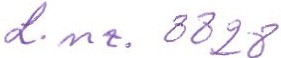 L. nr. 8828